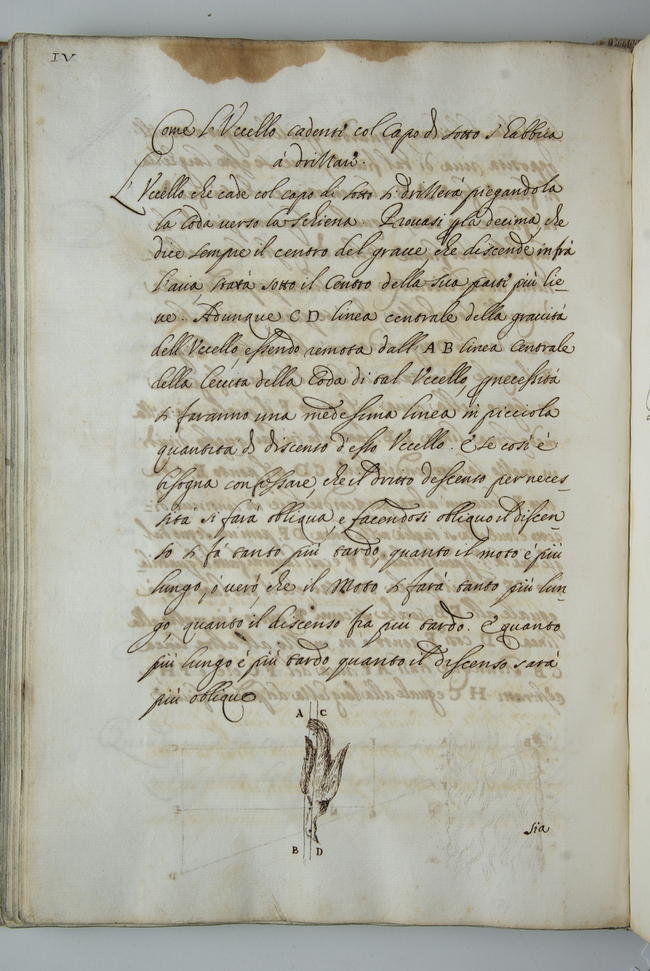 IV
Come l'Vccello cadente col capo di sotto s'habbia
à drittare.
L'Vccello che cade col capo di sotto si dritterà piegando la
la coda verso la schiena. Prouasi p la decima, che
dice sempre il centro del graue che discende infrà
l'aria starà sotto il centro della sua parte più lie-
ue. Adunque CD linea centrale della grauità
dell'Vccello, essendo remota dall'AB linea centrale
della leuità della coda di tal Vccello, p necessità
si faranno una medessima linea in picciola
quantità di discenso d'esso Vccello. E se così è
bisogna confessare, che il dritto descenso per neces-
sità si farà obliqua, e facendosi obliquo il discen-
so si fà tanto più tardo, quanto il moto è più
lungo, ò uerò che il Moto si farà tanto più lun-
go, quanto il discenso fia più tardo. E quanto
più lungo è più tardo quanto il discenso sarà
più obliquo
A C
B D
sia